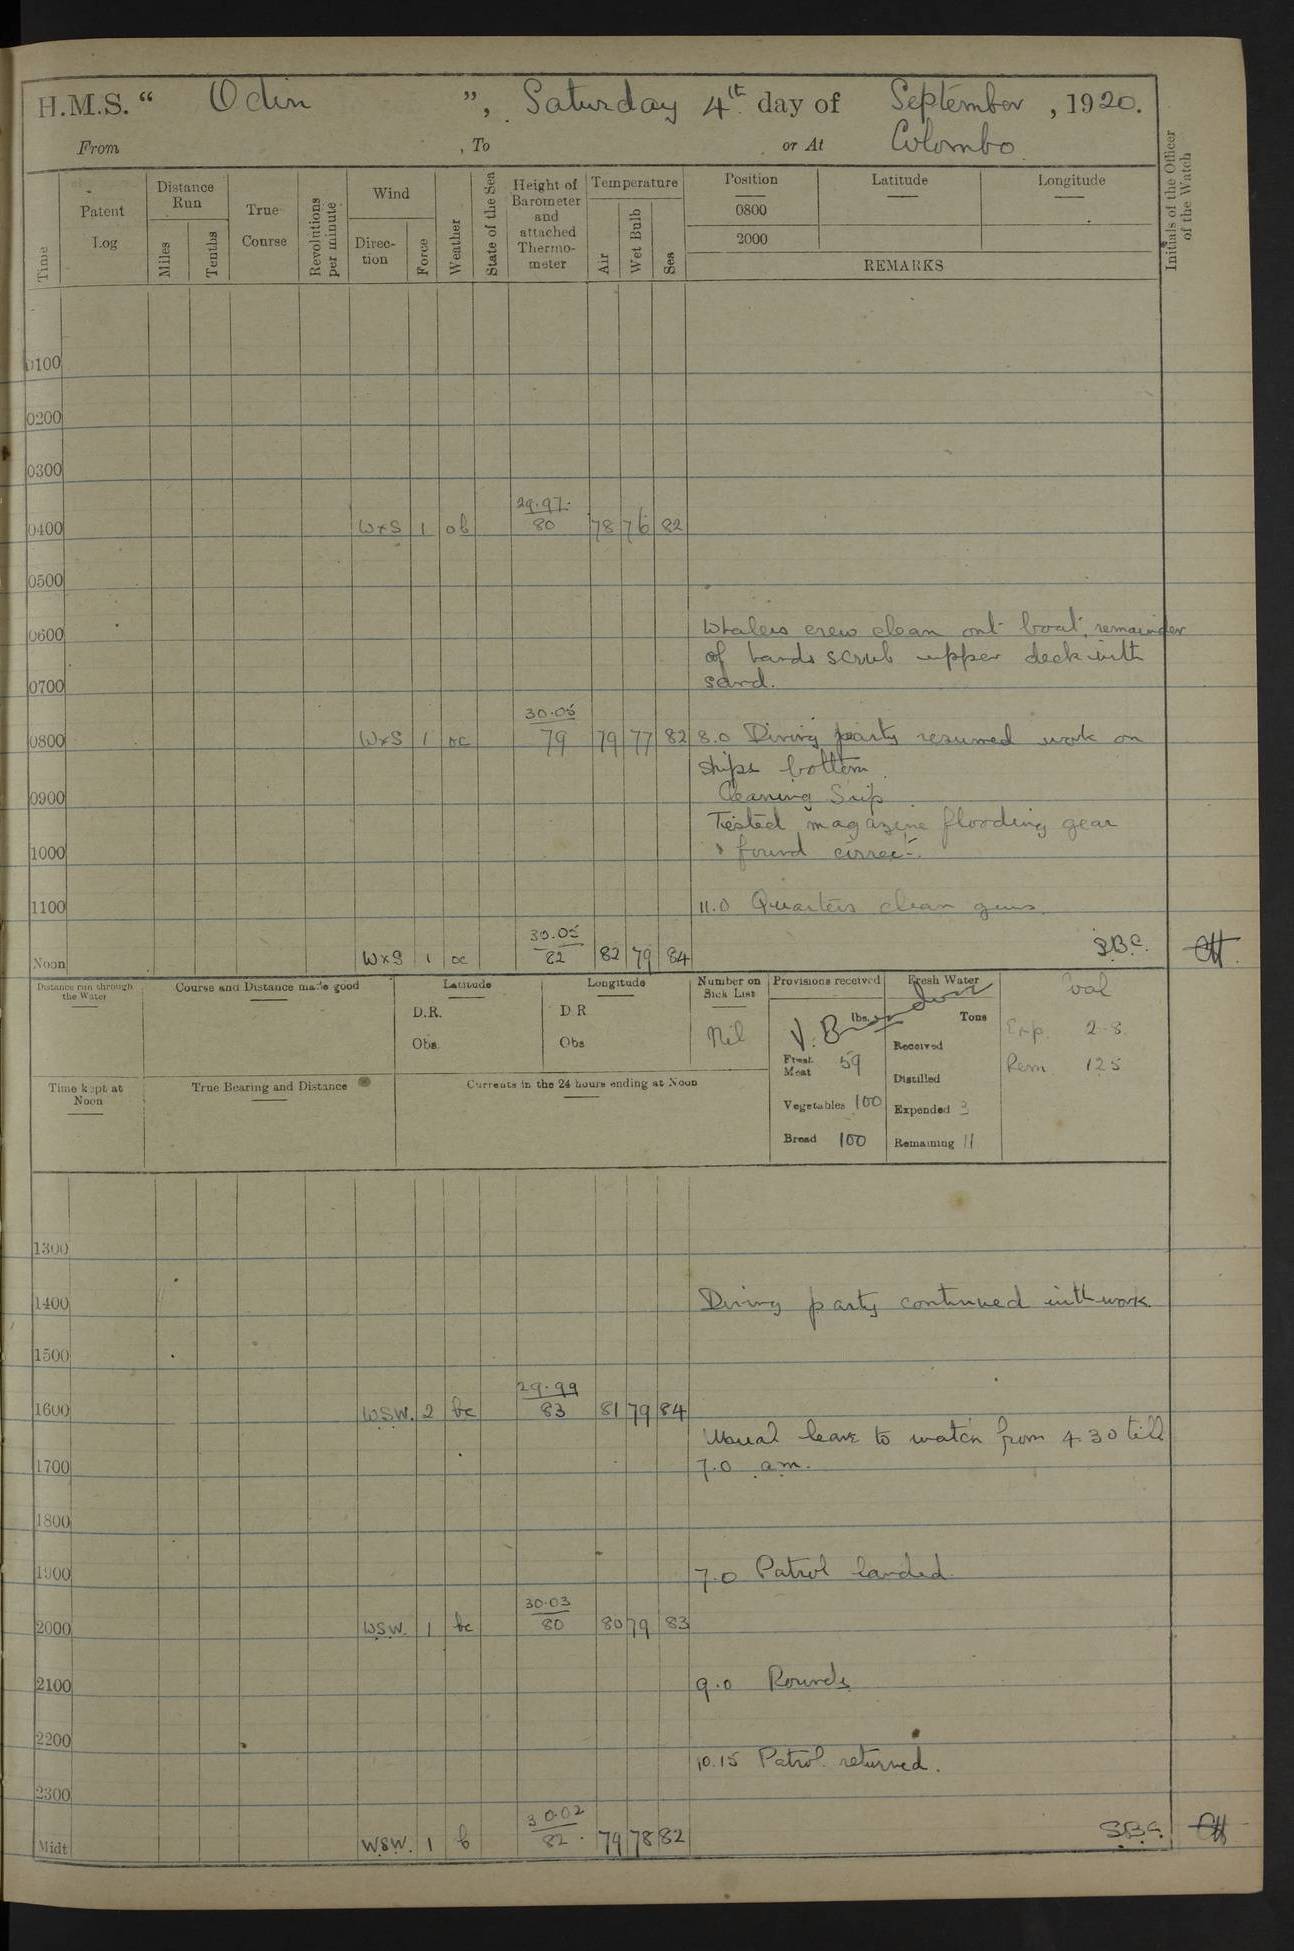 H.M.S. “ Odin ”, Saturday 4th day of September, 1920.
From , To or At Colombo
Time
Patent Log
Distance Run
Miles
Tenths
True Course
Revolutions per minute
Wind
Direc-tion
Force
Weather
State of the Sea
Height of Barometer and attached Thermo-meter
Temperature
Air
Wet Bulb
Sea
Position
Latitude
Longitude
0800
2000
REMARKS
Initials of the Officer of the Watch
0100
0200
0300
29.97
0400 WxS 1 ob 80 78 76 82
0500
0600 Whalers crew clean out boat, remainder
of hands scrub upper deck with
0700 sand.
30.05
0800 WxS 1 oc 79 79 77 82 8.0 Diving party resumed work on
ships bottom
0900 Cleaning Ship
Tested magazine flooding gear
1000 & found correct.
1100 11.0 Quarters clean guns.
30.05
Noon WxS 1 oc 82 82 79 84 S.B.C.
Distance run through the Water
Course and Distance made good
Latitude
D.R.
Obs.
Longitude
D R
Obs
Number on Sick List
Nil
Provisions received
lbs.
Fresh Meat 59
Vegetables 100
Bread 100
Fresh Water
Tons
Received
Distilled
Expended 3
Remaining 11
Coal
Exp. 2-8
Rem. 125
Time kept at Noon
True Bearing and Distance
Currents in the 24 hours ending at Noon
1300
1400 Diving party continued with work
1500
29.99
1600 WSW. 2 bc 83 81 79 84
Usual leave to watch from 4.30 till
1700 7.0 am.
1800
1900 7.0 Patrol landed.
30.03
2000 WSW. 1 bc 80 80 79 83
2100 9.0 Rounds
2200
10.15 Patrol returned.
2300
30.02
Midt WSW. 1 b 82 79 78 82 S.B.C.